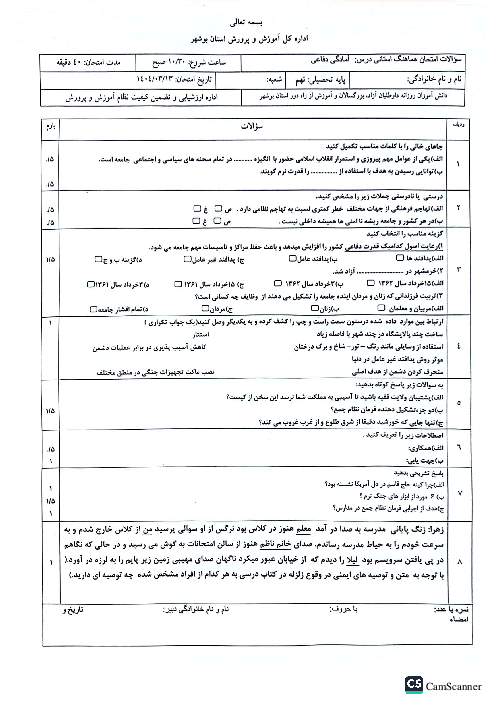 بسمه تعالی
اداره کل آموزش و پرورش استان بوشهر
سؤالات امتحان هماهنگ استانی درس: آمادگی دفاعی
ساعت شروع: ۱۰/۳۰ صبح
مدت امتحان: ۴۰ دقیقه
نام و نام خانوادگی:
پایه تحصیلی: نهم
شعبه:
تاریخ امتحان: ۱۴۰۴/۰۳/۱۳
دانش آموزان روزانه داوطلبان آزاد، بزرگسالان و آموزش از راه دور استان بوشهر
اداره ارزشیابی و تضمین کیفیت نظام آموزش و پرورش
ردیف
سؤالات
بارم
۱
جاهای خالی را با کلمات مناسب تکمیل کنید
الف)یکی از عوامل مهم پیروزی و استمرار انقلاب اسلامی حضور با انگیزه ........... در تمام صحنه های سیاسی و اجتماعی جامعه است.
۰/۵
ب)توانایی رسیدن به هدف با استفاده از ............... را قدرت نرم گویند.
۰/۵
۲
درستی یا نادرستی جملات زیر را مشخص کنید.
الف)تهاجم فرهنگی از جهات مختلف خطر کمتری نسبت به تهاجم نظامی دارد . ص غ
۰/۵
ب)در هر کشور و جامعه ریشه نا امنی ها همیشه داخلی نیست . ص غ
۰/۵
۳
گزینه مناسب را انتخاب کنید
۱)رعایت اصول کدامیک قدرت دفاعی کشور را افزایش میدهد و باعث حفظ مراکز و تاسیسات مهم جامعه می شود.
الف)پدافند ها ب)پدافند عامل ج) پدافند غیر عامل د)گزینه ب و ج
۱/۵
۲)خرمشهر در .......................... آزاد شد.
الف)۱۵خرداد سال ۱۳۶۲ ب)۳خرداد سال ۱۳۶۲ ج) ۱۵خرداد سال ۱۳۶۱ د)۳خرداد سال ۱۳۶۱
۳)تربیت فرزندانی که زنان و مردان آینده جامعه را تشکیل می دهند از وظایف چه کسانی است؟
الف)مربیان و معلمان ب)زنان ج)مردان د)تمام اقشار جامعه
۴
ارتباط بین موارد داده شده درستون سمت راست و چپ را کشف کرده و به یکدیگر وصل کنید(یک جواب تکراری )
۱
ساخت چند پالایشگاه در چند شهر با فاصله زیاد
استتار
استفاده از وسایلی مانند رنگ – تور- شاخ و برگ درختان
کاهش آسیب پذیری در برابر عملیات دشمن
موثر روش پدافند غیر عامل در دنیا
منحرف کردن دشمن از هدف اصلی
نصب ماکت تجهیزات جنگی در مناطق مختلف
۵
به سوالات زیر پاسخ کوتاه بدهید:
الف)پشتیبان ولایت فقیه باشید تا آسیبی به مملکت شما نرسد این سخن از کیست؟
ب)دو جزءتشکیل دهنده فرمان نظام جمع؟
۱/۵
ج)تنها جایی که خورشید دقیقا از شرق طلوع و از غرب غروب می کند؟
۶
اصطلاحات زیر را تعریف کنید .
الف)همکاری:
۰/۵
ب)جهت یابی:
۱
۷
پاسخ تشریحی بدهید
الف)چرا کینه حاج قاسم در دل آمریکا نشسته بود؟
۱
ب) ۶ مورد از ابزار های جنگ نرم ؟
۱/۵
ج)هدف از اجرایی فرمان نظام جمع در مدارس؟
۱
۸
زهرا: زنگ پایانی مدرسه به صدا در آمد معلم هنوز در کلاس بود نرگس از او سوالی پرسید من از کلاس خارج شدم و به
سرعت خودم را به حیاط مدرسه رساندم. صدای خانم ناظم هنوز از سالن امتحانات به گوش می رسید و در حالی که نگاهم
در پی یافتن سرویسم بود لیلا را دیدم که از خیابان عبور میکرد ناگهان صدای مهیبی زمین زیر پایم را به لرزه در آورد.(
با توجه به متن و توصیه های ایمنی در وقوع زلزله در کتاب درسی به هر کدام از افراد مشخص شده چه توصیه ای دارید.)
۱
نمره با عدد:
با حروف:
نام و نام خانوادگی دبیر:
تاریخ و
امضاء
CS CamScanner